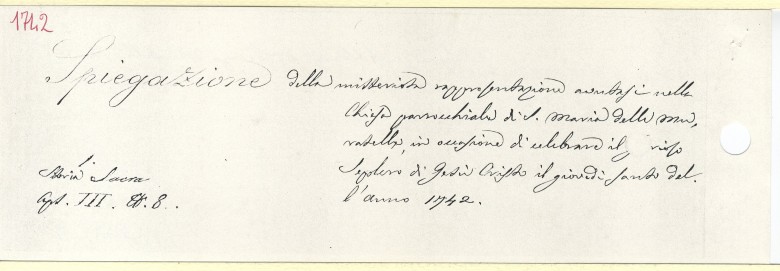 1742
Spiegazione della misteriosa rappresentazione avutasi nella
Chiesa parrocchiale di S. Maria delle Mu-
ratelle, in occasione di celebrare il
Sepolcro di Gesù Cristo il giovedì santo del-
l'anno 1742.
Storia Sacra
Opt. III. 8.